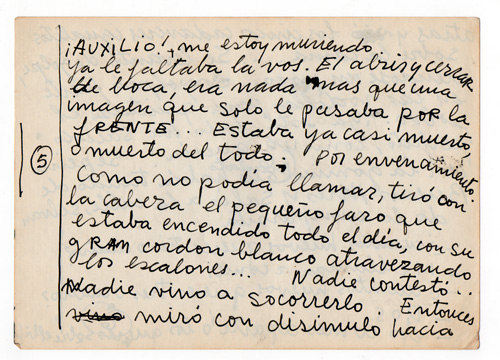 ¡AUXILIO!, me estoy muriendo...
Ya le faltaba la vos. El abrir y cerrar
de boca, era nada mas que una
imagen que solo le pasaba POR la
fRENTE... Estaba ya casi muerto,
o muerto del todo; Por envenamiento.
5
Como no podía llamar, tiró con
la cabeza el pequeño faro que
estaba encendido todo el día, con su
gRAN cordon blanco atravezando
los escalones... Nadie contestó...
Nadie vino a socorrerlo. Entonces
vino miró con disimulo hacia